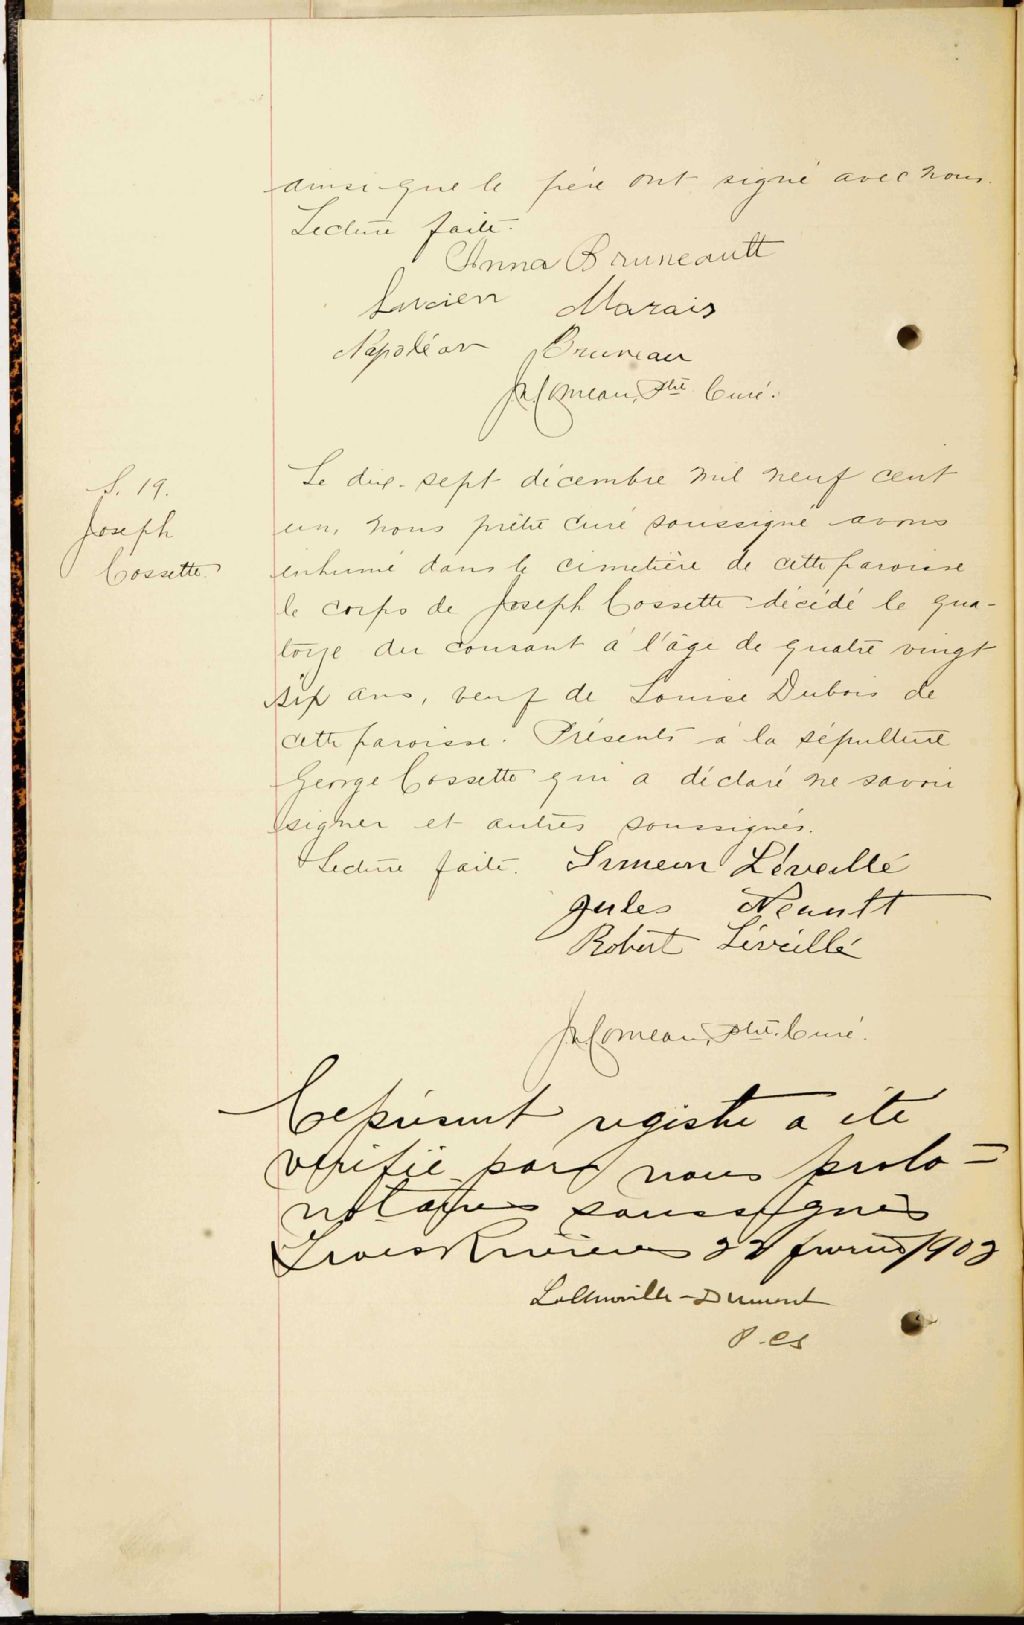 ainsi que le père ont signé avec nous.
Lecture faite.
Anna Bruneault
Lucien Marais
Napoléon Bruneau
Comeau, Ptre Curé.
S. 19.
Joseph
Cossette
Le dix-sept décembre mil neuf cent
un, nous prêtre curé soussigné avons
inhumé dans le cimetière de cette paroisse
le corps de Joseph Cossette décédé le qua-
torze du courant à l'âge de quatre vingt
six ans, veuf de Louise Dubois de
cette paroisse. Présents à la sépulture
George Cossette qui a déclaré ne savoir
signer et autres soussignés.
Lecture faite. Simeon Léveillé
Jules Neault
Robert Léveillé
Comeau, Ptre. Curé.
Ce présent registre a été
vérifié par nous proto=
notaires soussignés
Trois Rivières 22 février 1902
Dumont
P.C.S